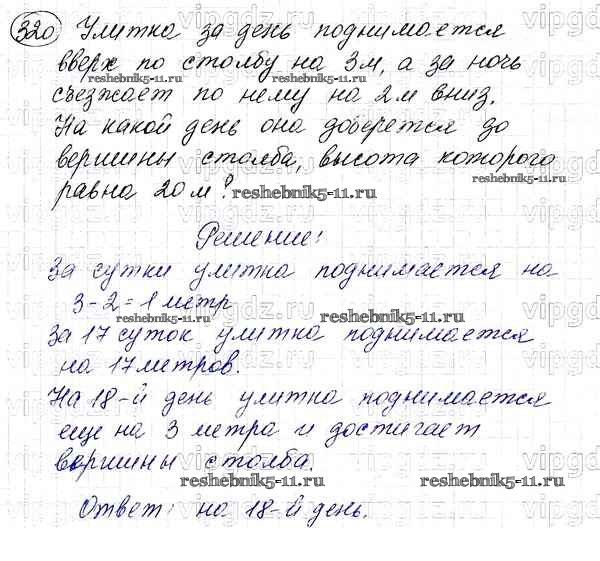 320 Улитка за день поднимается
вверх по столбу на 3м, а за ночь
reshebnik5-11.ru
съезжает по нему на 2м вниз.
На какой день она доберется до
вершины столба, высота которого
reshebnik5-11.ru
равна 20м?
reshebnik5-11.ru
Решение:
За сутки улитка поднимается на
3-2=1 метр
reshebnik5-11.ru
reshebnik5-11.ru
За 17 суток улитка поднимается
на 17 метров.
На 18-й день улитка поднимается
еще на 3 метра и достигает
вершины столба.
reshebnik5-11.ru
reshebnik5-11.ru
Ответ: на 18-й день.